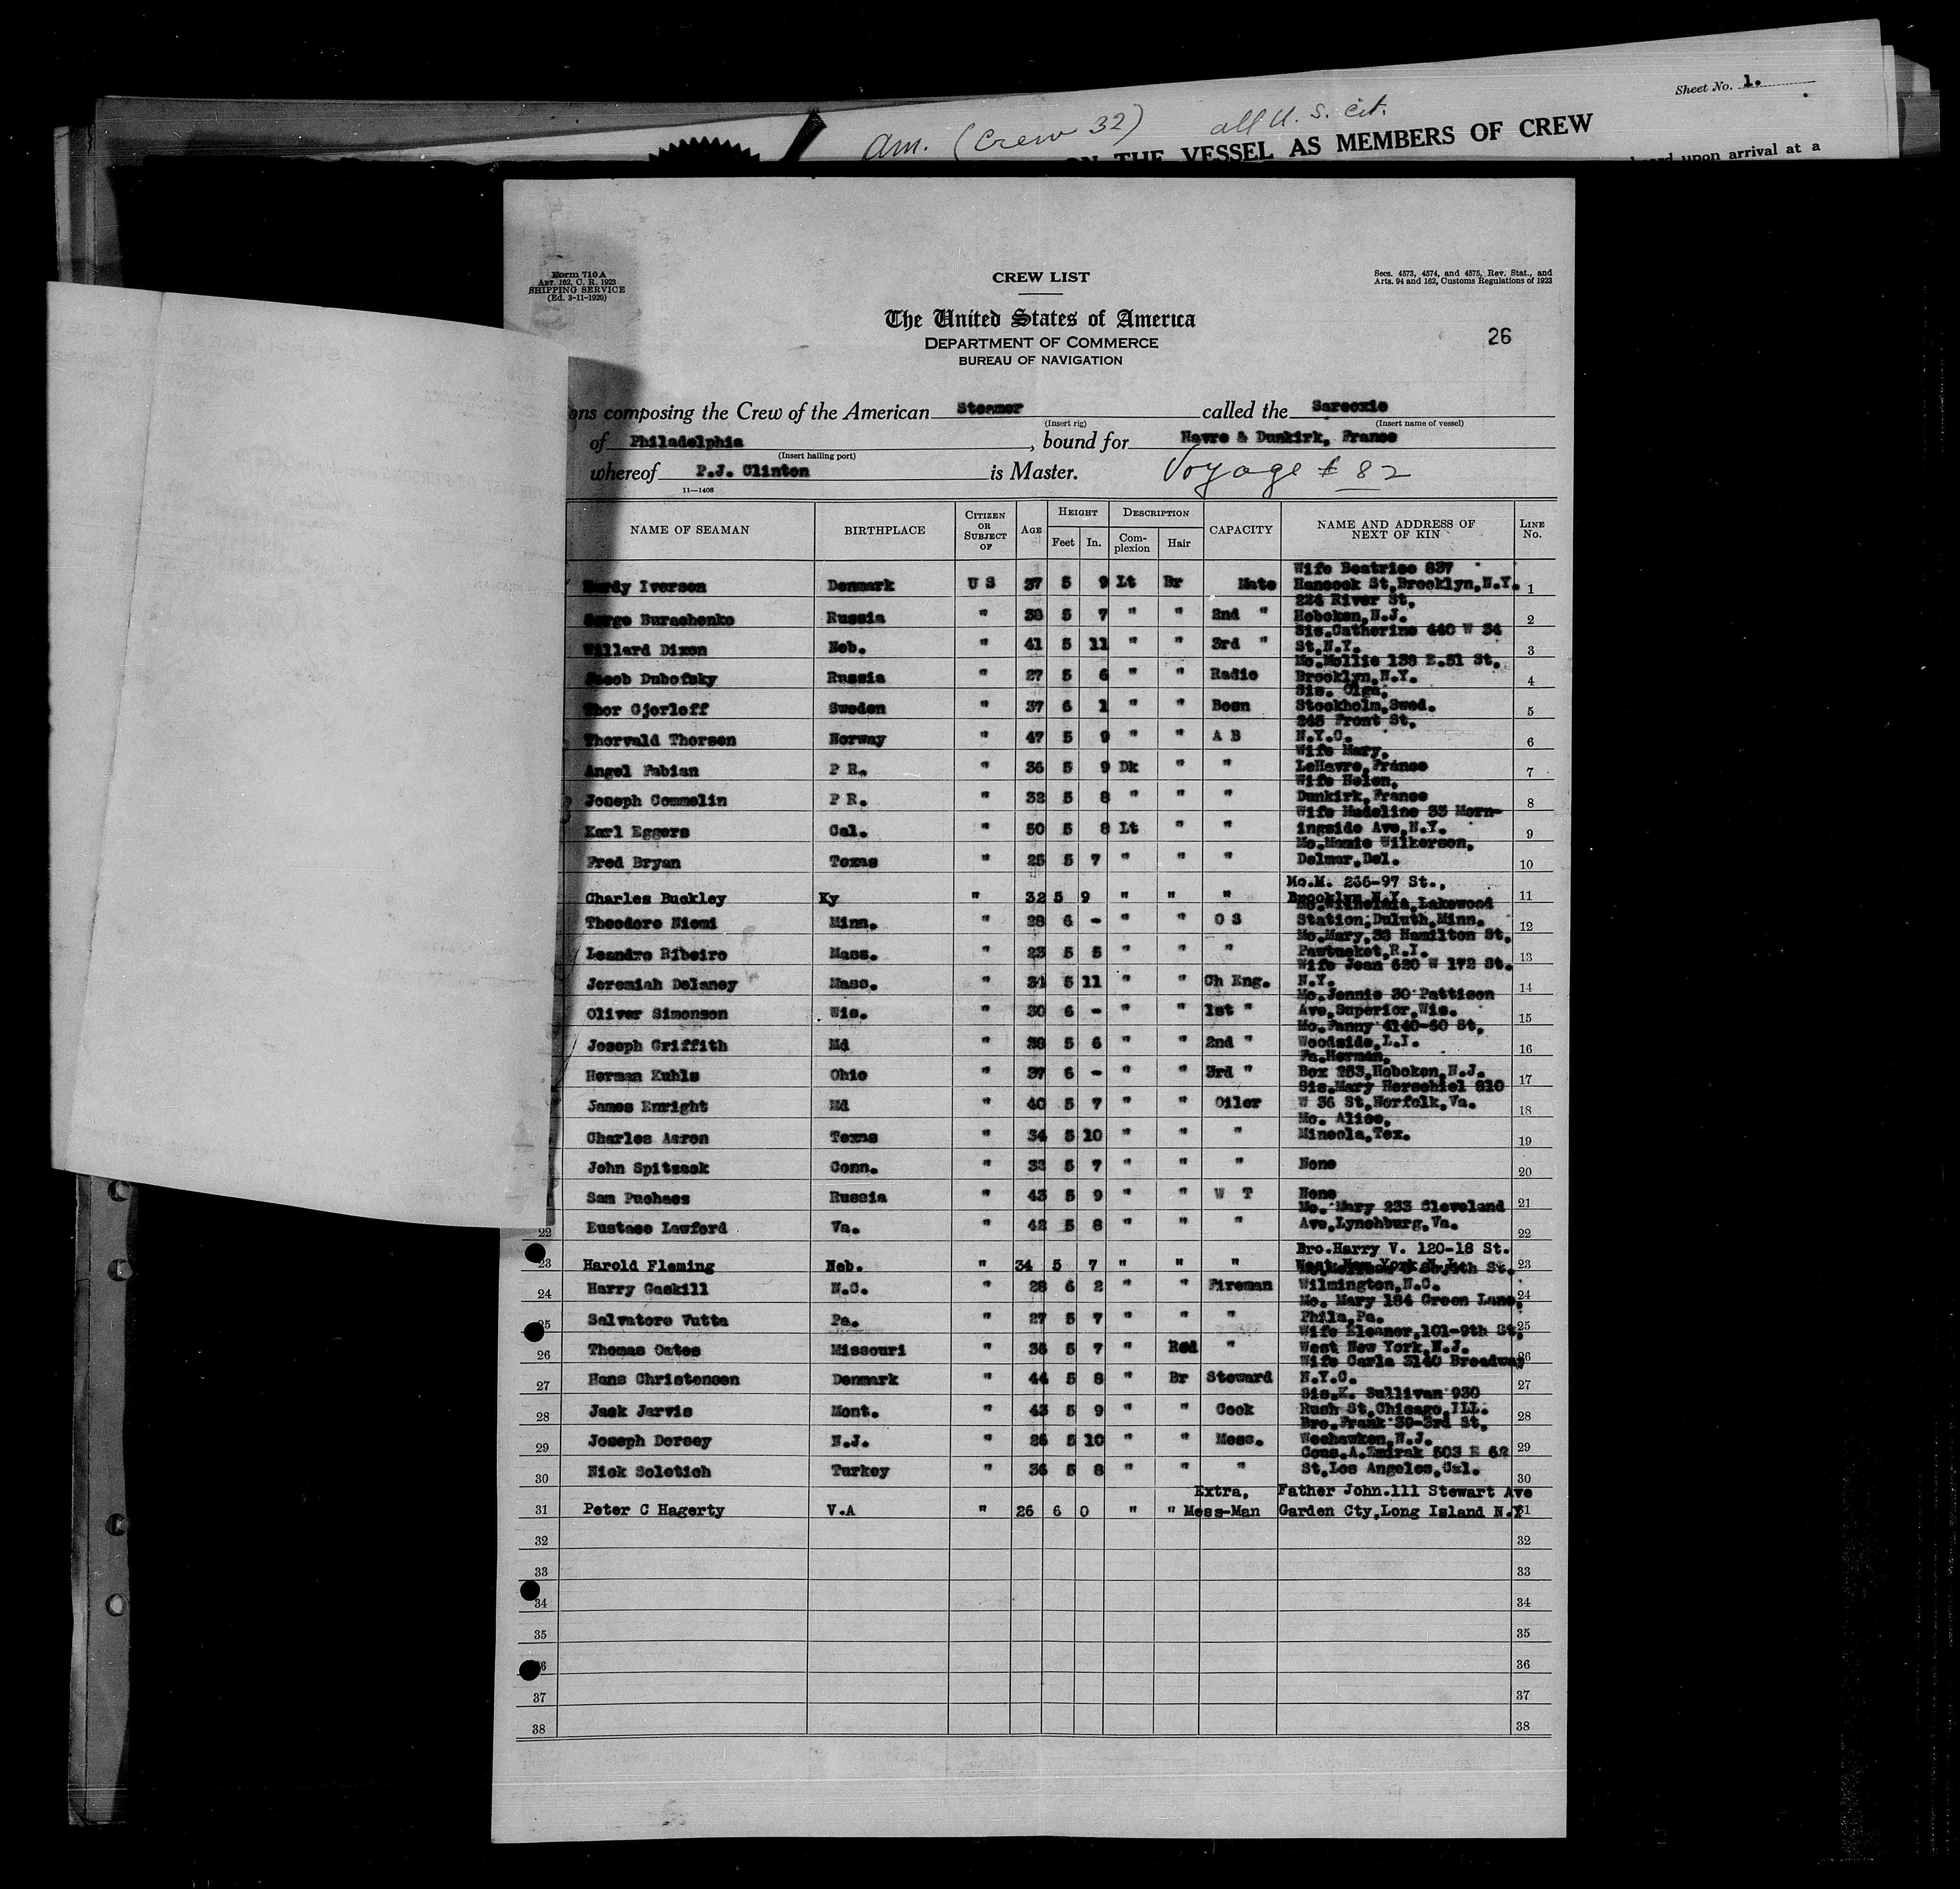 Sheet No. 1.
Am. (Crew 32) all U. S. cit.
ON THE VESSEL AS MEMBERS OF CREW
upon arrival at a
Form 710A
Art. 162, C. R. 1923
SHIPPING SERVICE
(Ed. 3-11-1929)
CREW LIST
Secs. 4573, 4574, and 4575, Rev. Stat., and
Arts. 94 and 162, Customs Regulations of 1923
The United States of America
DEPARTMENT OF COMMERCE
BUREAU OF NAVIGATION
26
ons composing the Crew of the American Steamer called the Sarcoxie
(Insert rig) (Insert name of vessel)
of Philadelphia, bound for Havre & Dunkirk, France
(Insert hailing port)
whereof P.J. Clinton is Master. Voyage # 82
11—1408
NAME OF SEAMAN BIRTHPLACE CITIZEN OR SUBJECT OF AGE HEIGHT Feet In. DESCRIPTION Complexion Hair CAPACITY NAME AND ADDRESS OF NEXT OF KIN LINE No.
Wife Beatrice 837
Iverson Denmark U S 37 5 9 Lt Br Mate Hancock St,Brooklyn,N.Y. 1
224 River St,
Burachenko Russia " 38 5 7 " " 2nd " Hoboken,N.J. 2
Sis.Catherine 440 W 34
Willard Dixon Neb. " 41 5 11 " " 3rd " St,N.Y. 3
Mo.Mollie 138 E.51 St,
Jacob Dubofsky Russia " 27 5 6 " " Radio Brooklyn,N.Y. 4
Sis. Olga,
Thor Gjerloff Sweden " 37 6 1 " " Bosn Stockholm,Swed. 5
245 Front St,
Thorvald Thorsen Norway " 47 5 9 " " A B N.Y.C. 6
Wife Mary,
Angel Fabian P R. " 36 5 9 Dk " " LeHavre,France 7
Wife Helen,
Joseph Commelin P R. " 32 5 8 " " " Dunkirk,France 8
Wife Madeline 33 Morn-
Karl Eggers Cal. " 50 5 8 Lt " " ingside Ave,N.Y. 9
Mo.Mamie Wilkerson,
Fred Bryan Texas " 25 5 7 " " " Delmar,Del. 10
Mo.M. 266-97 St.,
Charles Buckley Ky " 32 5 9 " " " Brooklyn N.Y. 11
Lakewood
Theodore Niemi Minn. " 28 6 - " " O S Station,Duluth,Minn. 12
Mo.Mary,33 Hamilton St,
Leandro Ribeiro Mass. " 23 5 5 " " " Pawtucket,R.I. 13
Wife Jean 620 W 172 St.
Jeremiah Delaney Mass. " 31 5 11 " " Ch Eng. N.Y. 14
Mo.Jennie 30 Pattison
Oliver Simonson Wis. " 30 6 - " " 1st " Ave,Superior,Wis. 15
Mo.Fanny 4140-50 St,
Joseph Griffith Md " 38 5 6 " " 2nd " Woodside,L.I. 16
Fa.Herman,
Herman Kuhls Ohio " 37 6 - " " 3rd " Box 253,Hoboken,N.J. 17
Sis.Mary Herschiel 810
James Enright Md " 40 5 7 " " Oiler W 36 St,Norfolk,Va. 18
Mo. Alice,
Charles Aaron Texas " 34 5 10 " " " Mineola,Tex. 19
John Spitzack Conn. " 32 5 7 " " " None 20
Sam Puchacs Russia " 43 5 9 " " W T None 21
Mo. Mary 233 Cleveland
22 Eustace Lawford Va. " 42 5 8 " " " Ave,Lynchburg,Va. 22
Bro.Harry V. 120-18 St.
23 Harold Fleming Neb. " 34 5 7 " " " West New York N.J. 23
24 Harry Gaskill N.C. " 28 6 2 " " Fireman Wilmington,N.C. 24
Mo. Mary 184 Green Lane,
25 Salvatore Vutta Pa. " 27 5 7 " " " Phila,Pa. 25
Wife Eleanor,101-9th St,
26 Thomas Oates Missouri " 36 5 7 " Red " West New York,N.J. 26
Wife Carla 3140 Broadway
27 Hans Christensen Denmark " 44 5 8 " Br Steward N.Y.C. 27
Sis.K. Sullivan 930
28 Jack Jarvis Mont. " 43 5 9 " " Cook Rush St,Chicago,ILL. 28
Bro.Frank 39-3rd St,
29 Joseph Dorsey N.J. " 26 5 10 " " Mess. Weehawken,N.J. 29
Cous.A.Zmirak 503 E 62
30 Nick Soletich Turkey " 36 5 8 " " " St,Los Angeles,Cal. 30
Extra. Father John.111 Stewart Ave
31 Peter C Hagerty V.A " 26 6 0 " " Mess-Man Garden Cty,Long Island N.Y 31
32 32
33 33
34 34
35 35
36 36
37 37
38 38